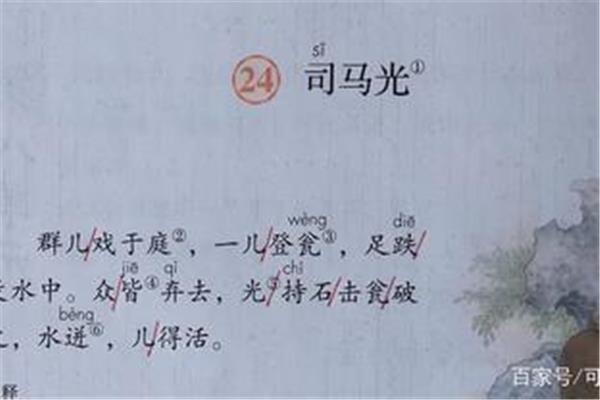 sī
24 司马光①
wèng diē
群儿/戏于庭②，一儿/登瓮③，足跌/
jiē qì chí
水中。众/皆④弃去，光⑤/持石/击瓮/破
bèng
，水迸⑥，儿/得活。
释
百家号/可